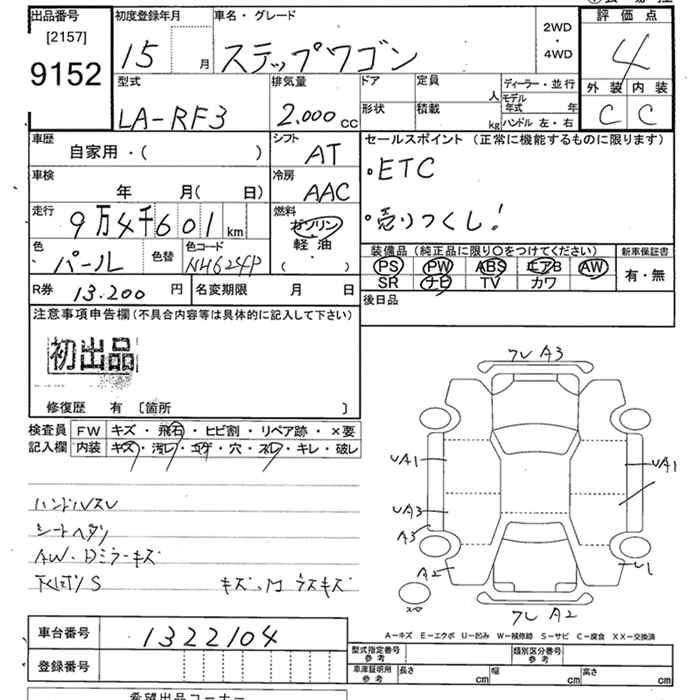 出品番号 初度登録年月 車名・グレード 2WD・4WD 評価点
[2157]
9152 15 月 ステップワゴン 4
型式 排気量 ドア 定員 人 ディーラー・並行 外装 内装
LA-RF3 2.000cc 形状 積載 kg モデル年式 年 C C
ハンドル 左・右
車歴 シフト セールスポイント (正常に機能するものに限ります)
自家用・( ) AT ・ETC
車検 冷房
年 月( 日) AAC
走行 燃料 ・売りつくし!
9万4千601km ガソリン
色 色替 色コード 軽油 装備品 (純正品に限り○をつけてください) 新車保証書
パール NH624P ( ) PS PW ABS エアB AW 有・無
R券 13.200円 名変期限 月 日 SR ナビ TV カワ
注意事項申告欄(不具合内容等は具体的に記入して下さい) 後日品
初出品
修復歴 有 〔箇所 〕
検査員 FW キズ・飛石・ヒビ割・リペア跡・×要
記入欄 内装 キズ・汚レ・コゲ・穴・スレ・キレ・破レ
ハンドルスレ
シートヘタリ
AW・Dミラーキズ
下廻りS キズ、
フレ A3
UA1 UA1
UA3
A3
A2 U1
スペア フレ A2
A-キズ E-エクボ U-凹み W-補修跡 S-サビ C-腐食 XX-交換済
車台番号 1322104
型式指定番号 参考 類別区分番号 参考
登録番号
車庫証明用 参考 長さ cm 幅 cm 高さ cm
希望出品コーナー